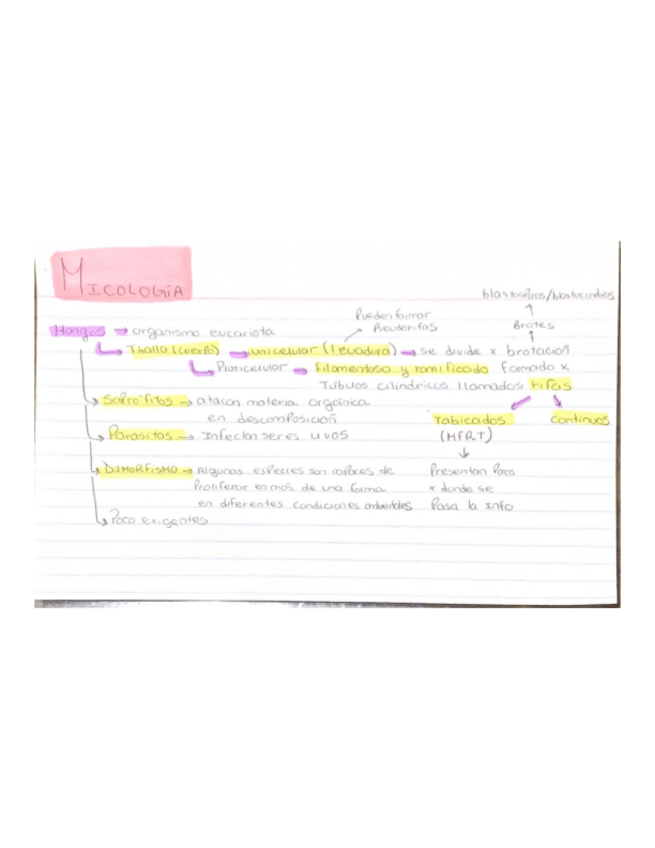 MICOLOGÍA
blastosporos/blastoconidios
Pueden formar
Pseudohifas
Brotes
Hongos → organismo eucariota
Thallo (cuerpo) → unicelular (levadura) → se divide x brotación
Pluricelular → filamentoso y ramificado formado x
Túbulos cilíndricos llamados hifas
Saprofitos → atacan materia orgánica
en descomposición
Tabicados
continuos
Parásitos → Infectan seres vivos
(MFRT)
DIMORFISMO → Algunas especies son capaces de
Presentan Poros
Proliferar en más de una forma
x donde se
en diferentes condiciones ambientales
Pasa la info
Poco exigentes